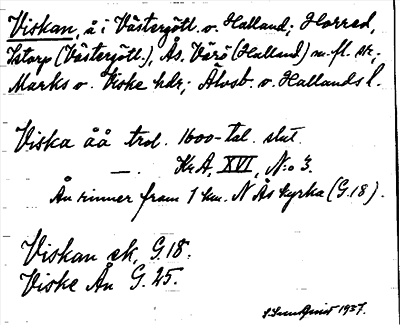 Viskan, å i Västergötl. o. Halland; Horred,
Istorp (Västergötl.), Ås, Värö (Halland) m. fl. sr.;
Marks o. Viske hdr; Älvsb. o. Hallands l.
Viska åå trol. 1600-tal. slut.
—. Kr. A. XVI, N:o 3.
Ån rinner fram 1 km. N Ås kyrka (G.18).
Viskan ek. G.18.
Viske Ån G. 25.
S. Lundqvist 1937.